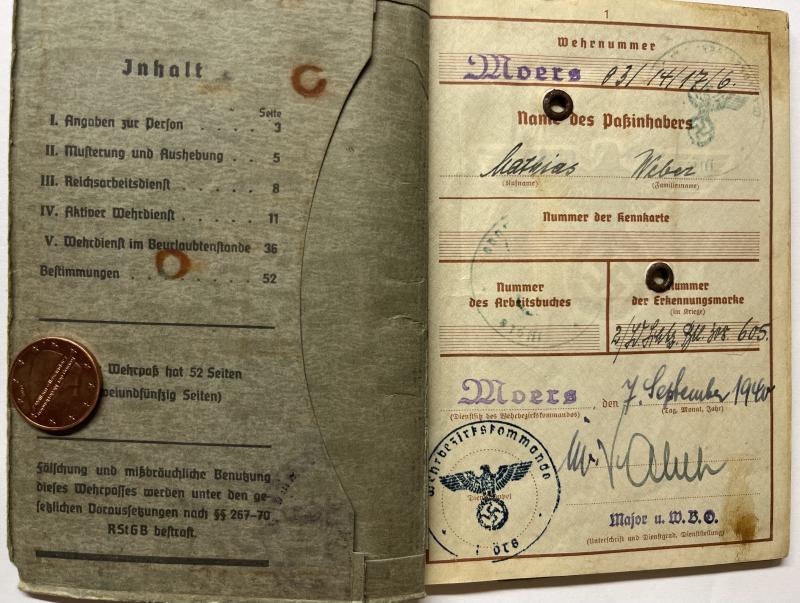 Inhalt
Seite
I. Angaben zur Person . . . . . 3
II. Musterung und Aushebung . . 5
III. Reichsarbeitsdienst . . . . . . 8
IV. Aktiver Wehrdienst . . . . . . 11
V. Wehrdienst im Beurlaubtenstande 36
Bestimmungen . . . . . . . . . 52
Wehrpaß hat 52 Seiten
eiundfünfzig Seiten)
Fälschung und mißbräuchliche Benutzung
dieses Wehrpasses werden unter den ge-
setzlichen Voraussetzungen nach §§ 267-70
RStGB bestraft.
1
Wehrnummer
Moers 03/14/17/6.
Name des Paßinhabers
Mathias Weber
(Rufname) (Familienname)
Nummer der Kennkarte
Nummer
des Arbeitsbuches
Nummer
der Erkennungsmarke
(im Kriege)
605.
Moers, den 7. September 1940
(Dienstsitz des Wehrbezirkskommandos) (Tag, Monat, Jahr)
Wehrbezirkskommando
Major u. W.B.O.
(Unterschrift und Dienstgrad, Dienststellung)